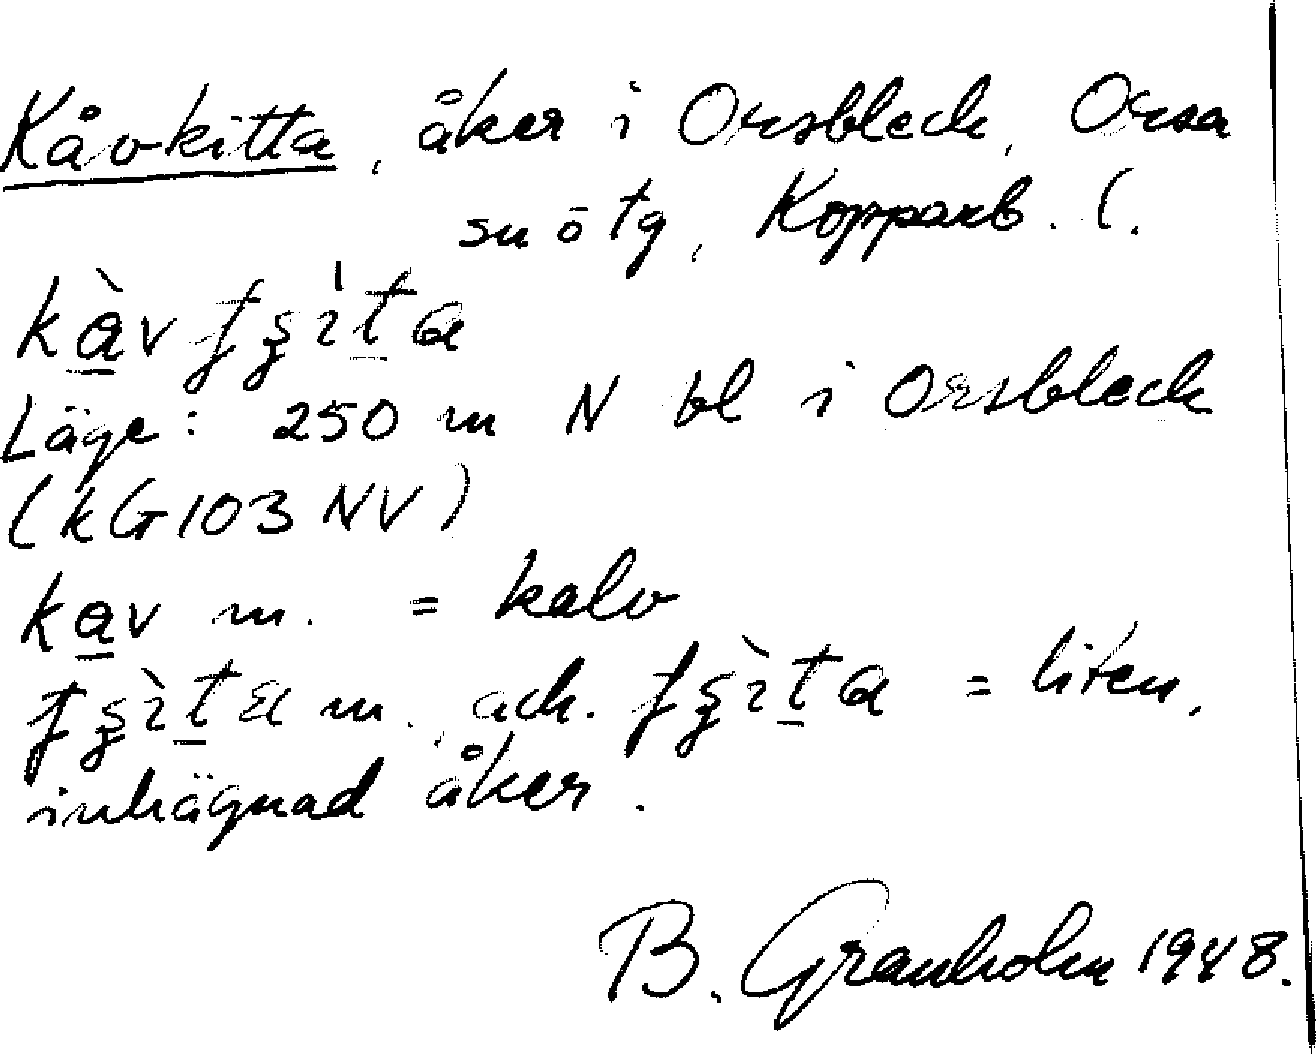 Kåvkitta, åker i Orsbleck, Orsa
sn ö tg, Kopparb. l.
kàv ʄʂìta
Läge: 250 m N bl i Orsbleck
(kG103 NV)
kav m. = kalv
ʄʂìta m., ack. ʄʂìta = liten,
inhägnad åker.
B. Granholm 1948.